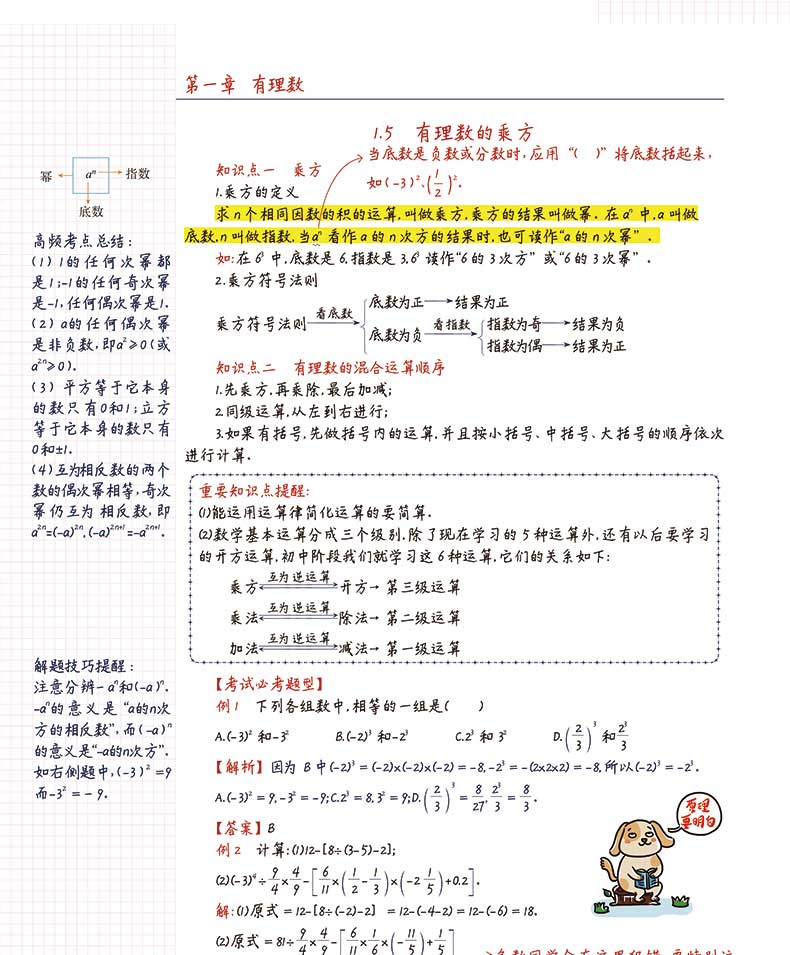 第一章 有理数
1.5 有理数的乘方
当底数是负数或分数时,应用“( )”将底数括起来,
如(-3)²、(1/2)².
知识点一 乘方
1.乘方的定义
求n个相同因数的积的运算,叫做乘方,乘方的结果叫做幂. 在aⁿ中,a叫做
底数,n叫做指数,当aⁿ看作a的n次方的结果时,也可读作“a的n次幂”.
如:在6³中,底数是6,指数是3,6³读作“6的3次方”或“6的3次幂”.
2.乘方符号法则
乘方符号法则 看底数 底数为正→结果为正
底数为负 看指数 指数为奇→结果为负
指数为偶→结果为正
知识点二 有理数的混合运算顺序
1.先乘方,再乘除,最后加减;
2.同级运算,从左到右进行;
3.如果有括号,先做括号内的运算,并且按小括号、中括号、大括号的顺序依次
进行计算.
重要知识点提醒:
(1)能运用运算律简化运算的要简算.
(2)数学基本运算分成三个级别,除了现在学习的5种运算外,还有以后要学习
的开方运算,初中阶段我们就学习这6种运算,它们的关系如下:
乘方 互为逆运算 开方→第三级运算
乘法 互为逆运算 除法→第二级运算
加法 互为逆运算 减法→第一级运算
【考试必考题型】
例1 下列各组数中,相等的一组是( )
A.(-3)²和-3² B.(-2)³和-2³ C.2³和3² D.(2/3)³和2³/3
【解析】因为B中(-2)³=(-2)×(-2)×(-2)=-8,-2³=-(2×2×2)=-8,所以(-2)³=-2³.
A.(-3)²=9,-3²=-9;C.2³=8,3²=9;D.(2/3)³=8/27,2³/3=8/3.
【答案】B
例2 计算:(1)12-[8÷(3-5)-2];
(2)(-3)⁴÷9/4×4/9-[6/11×(1/2-1/3)×(-2 1/5)+0.2].
解:(1)原式=12-[8÷(-2)-2]=12-(-4-2)=12-(-6)=18.
(2)原式=81÷9/4×4/9-[6/11×1/6×(-11/5)+1/5]
幂 aⁿ 指数
底数
高频考点总结:
(1)1的任何次幂都
是1;-1的任何奇次幂
是-1,任何偶次幂是1.
(2)a的任何偶次幂
是非负数,即a²≥0(或
a²ⁿ≥0).
(3)平方等于它本身
的数只有0和1;立方
等于它本身的数只有
0和±1.
(4)互为相反数的两个
数的偶次幂相等,奇次
幂仍互为相反数,即
a²ⁿ=(-a)²ⁿ,(-a)²ⁿ⁺¹=-a²ⁿ⁺¹.
解题技巧提醒:
注意分辨-aⁿ和(-a)ⁿ.
-aⁿ的意义是“a的n次
方的相反数”,而(-a)ⁿ
的意义是“-a的n次方”.
如右侧题中,(-3)²=9
而-3²=-9.
原理
要明白